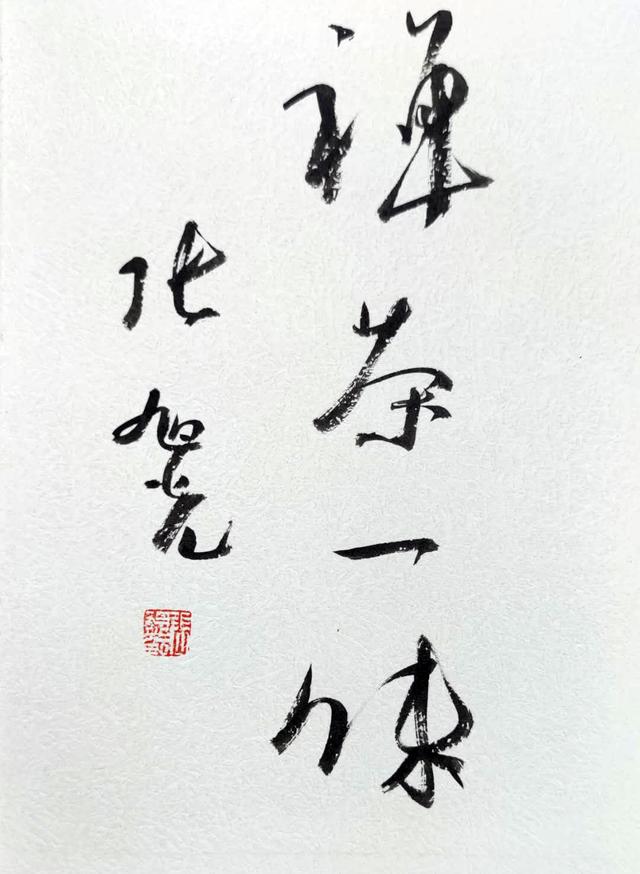 禅茶一味
张旭光